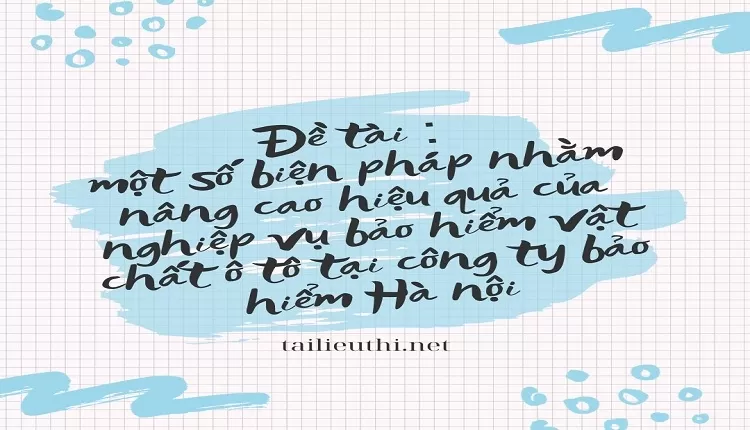 Đề tài :
một số biện pháp nhằm
nâng cao hiệu quả của
nghiệp vụ bảo hiểm vật
chất ô tô tại công ty bảo
hiểm Hà nội
tailieuthi.net